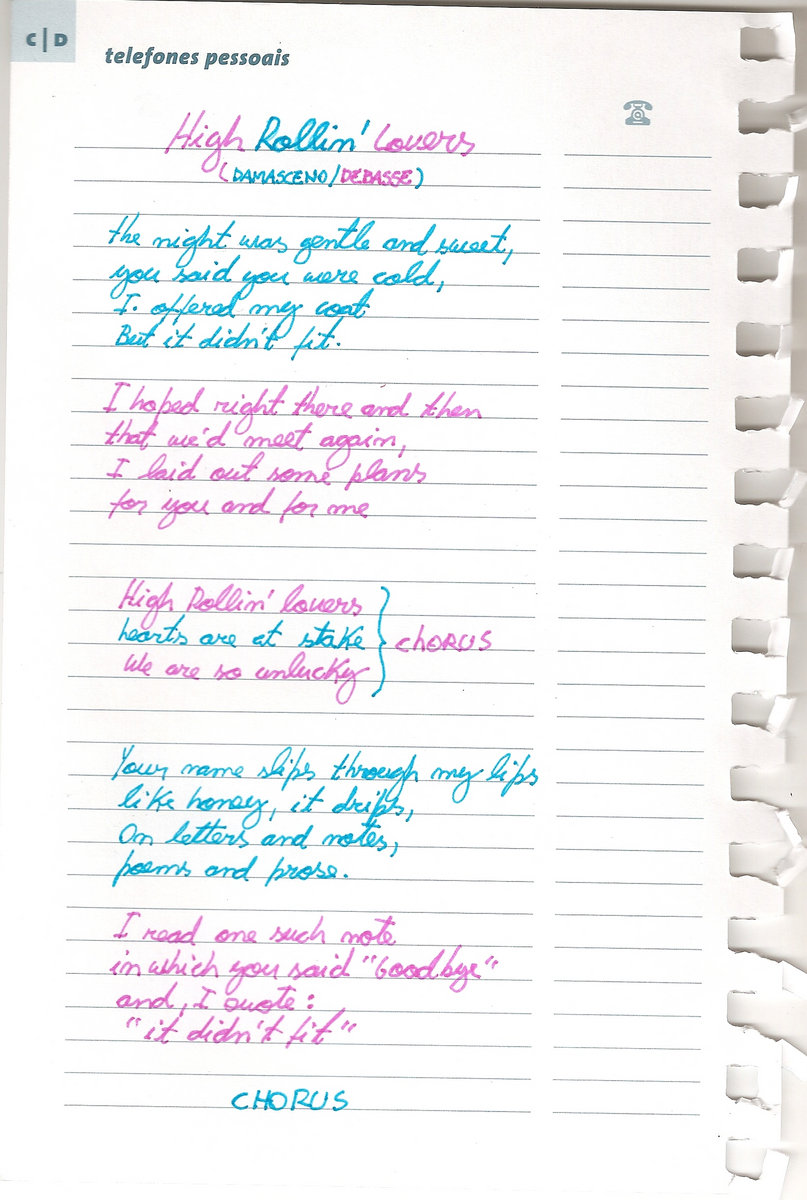 C|D
telefones pessoais
High Rollin' Lovers
(DAMASCENO/DEBASSE)
the night was gentle and sweet,
you said you were cold,
I offered my coat
But it didn't fit.
I hoped right there and then
that we'd meet again,
I laid out some plans
for you and for me
High Rollin' lovers
hearts are at stake
We are so unlucky
CHORUS
Your name slips through my lips
like honey, it drips,
On letters and notes,
poems and prose.
I read one such note
in which you said "Goodbye"
and, I quote:
"it didn't fit"
CHORUS